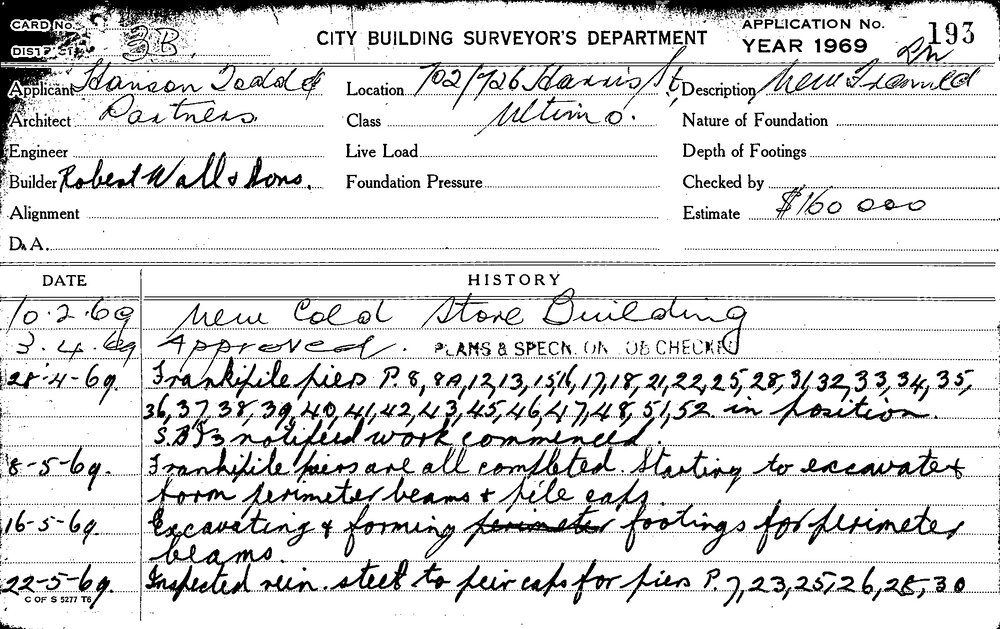 CARD No. 3B CITY BUILDING SURVEYOR'S DEPARTMENT APPLICATION No. 193
DISTRICT YEAR 1969
Applicant Hanson Todd & Location 702/726 Harris St, Description New
Architect Partners Class Ultimo. Nature of Foundation
Engineer Live Load Depth of Footings
Builder Robert Wall & Sons. Foundation Pressure Checked by
Alignment Estimate $160 000
D.A.
DATE HISTORY
10.2.69 New Cold Store Building
3.4.69 Approved. PLANS & SPECN. ON JOB CHECKED
28-4-69. Frankipile piers P. 8, 8A, 12, 13, 15, 16, 17, 18, 21, 22, 25, 28, 31, 32, 33, 34, 35,
36, 37, 38, 39, 40, 41, 42, 43, 45, 46, 47, 48, 51, 52 in position.
notified work commenced.
8-5-69. Frankipile piers are all completed. Starting to excavate &
form perimeter beams & pile caps.
16-5-69. Excavating & forming perimeter footings for perimeter
beams.
22-5-69. Inspected rein. steel to peir caps for piers P. 7, 23, 25, 26, 28, 30
C OF S 5277 T6